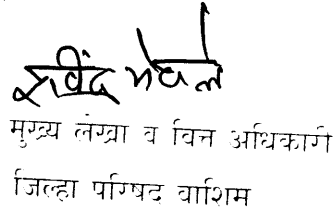 रविंद्र येवले
मुख्य लेखा व वित्त अधिकारी
जिल्हा परिषद वाशिम